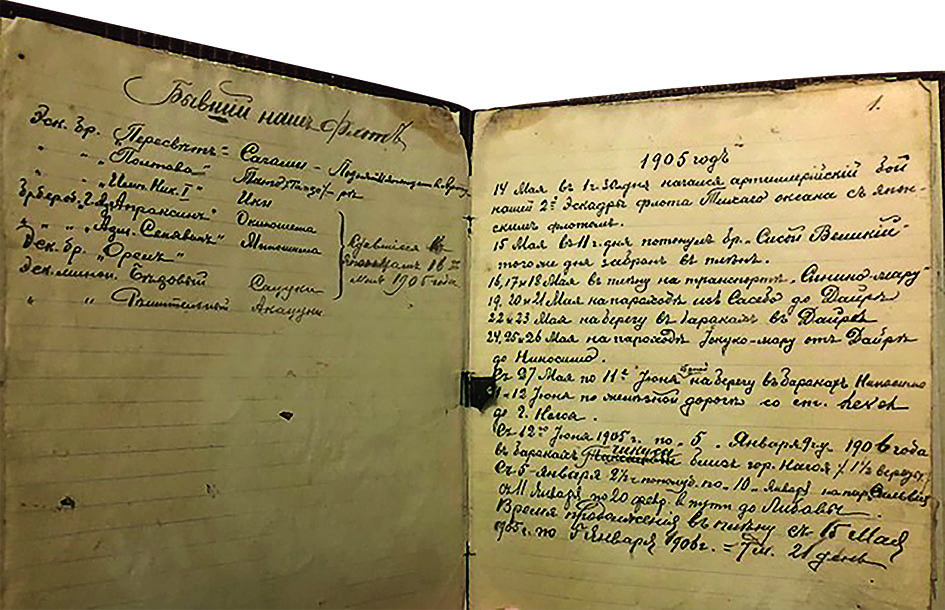 Бывший нашъ флотъ
Эск. Бр. „Пересвѣтъ" = Сагами –
„ „ „Полтава" Танго
„ „ „Имп. Ник. I" Ики
Бр. берег. „Апраксинъ" Окиношима
„ „ „Адм. Сенявинъ" Мишима
Эск. Бр. „Орелъ"
Эск. минон. Бѣдовый Сацуки
„ „ Рѣшительный Акацуки
Сдавшiеся
15
Мая 1905 года
1.
1905 годъ
14 Мая въ 1 ч. дня начался артиллерiйскiй бой
нашей 2й Эскадры флота Тихаго океана съ япон-
скимъ флотомъ.
15 Мая въ 11 ч. дня потонулъ бр. „Сисой Великiй"
того-же дня забранъ въ плѣнъ.
16, 17 и 18 Мая въ плѣну на транспортѣ „Синано-мару"
19, 20 и 21 Мая на пароходѣ изъ Сасебо до Дайри
22 и 23 Мая на берегу въ баракахъ въ Дайри
24, 25 и 26 Мая на пароходѣ отъ Дайри
до Ниносима.
Съ 27 Мая по 11е Iюня на берегу въ баракахъ Ниносима
11 и 12 Iюня по желѣзной дорогѣ со ст.
до г. Нагоя.
Съ 12го Iюня 1905 г. по 5 Января 1906 года
въ баракахъ близъ гор. Нагоя 1½ версты
Съ 5 Января 2½ ч. по 10 Января на пар.
съ 11 Января по 20 февр. въ пути до Либавы.
Время продолженiя въ плѣну съ 15 Мая
1905 г. по 5 Января 1906 г. = 7 м. 21 день